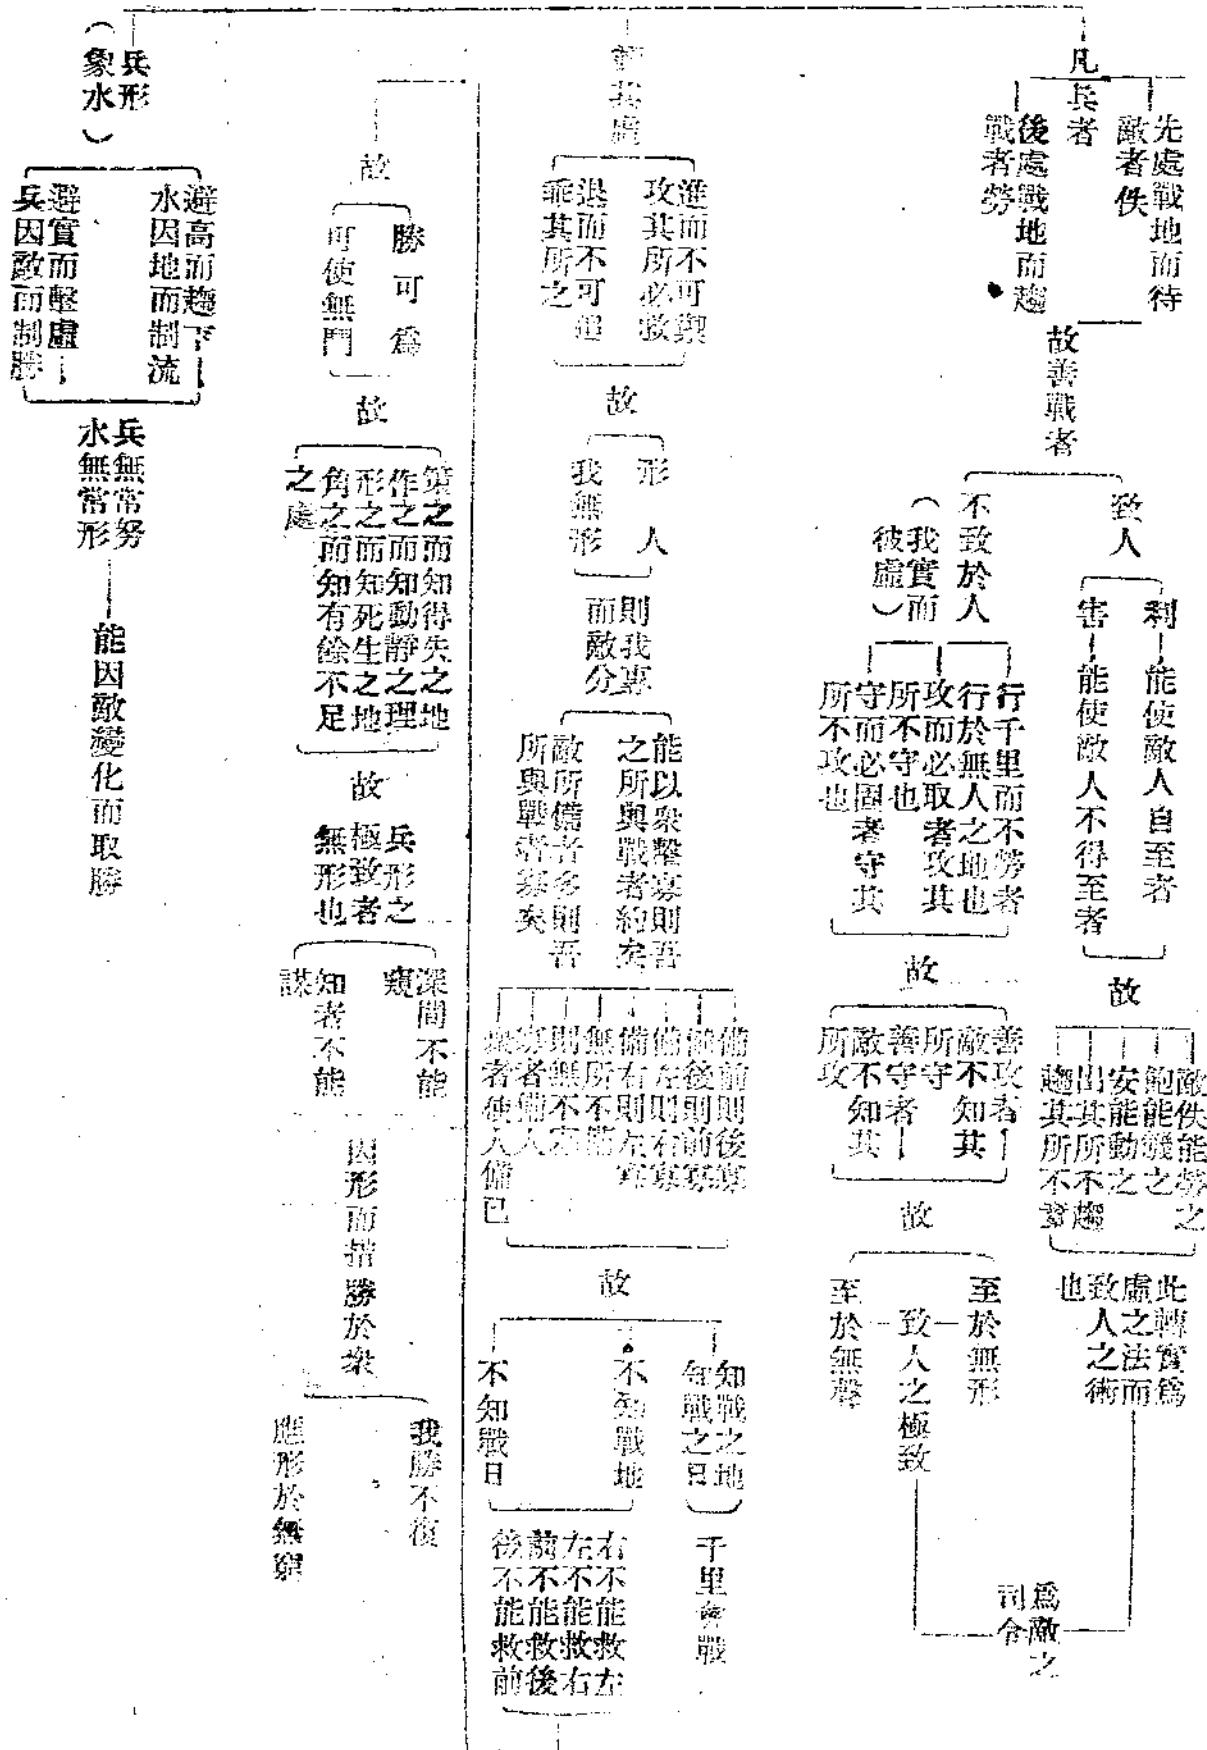 凡兵者
先處戰地而待
敵者佚
後處戰地而趨
戰者勞
故善戰者
致人
利
能使敵人自至者
害
能使敵人不得至者
故
敵佚能勞之
飽能饑之
安能動之
出其所不趨
趨其所不意
此轉實爲
虛之法而
致人之術
也
不致於人
(我實而
彼虛)
行千里而不勞者
行於無人之地也
攻而必取者攻其
所不守也
守而必固者守其
所不攻也
故
善攻者
敵不知其
所守
善守者
敵不知其
所攻
故
至於無形
致人之極致
至於無聲
爲敵之
司令
其虛
進而不可與
攻其所必救
退而不可追
乖其所之
故
形人
我無形
則我專
而敵分
能以衆擊寡則吾
之所與戰者約矣
敵所備者多則吾
所與戰者寡矣
備前則後寡
備後則前寡
備左則右寡
備右則左寡
無所不備
則無不寡
寡者備人
衆者使人備己
故
知戰之地
知戰之日
千里會戰
不知戰地
不知戰日
右不能救左
左不能救右
前不能救後
後不能救前
故
勝可爲
可使無鬥
故
策之而知得失之地
作之而知動靜之理
形之而知死生之地
角之而知有餘不足
之處
故
兵形之
極致者
無形也
深間不能
窺
知者不能
謀
因形而措勝於衆
我勝不復
應形於無窮
兵形
(象水)
避高而趨下
水因地而制流
避實而擊虛
兵因敵而制勝
兵無常努
水無常形
能因敵變化而取勝